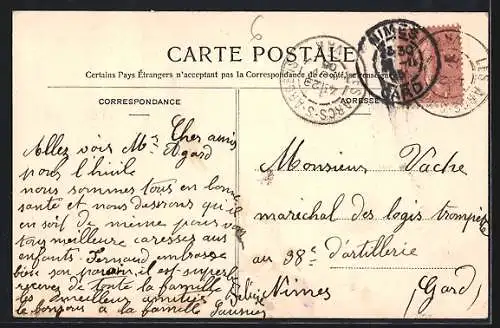 6
CARTE POSTALE
Certains Pays Étrangers n'acceptent pas la Correspondance de ce côté, se renseigner
CORRESPONDANCE
ADRESSE
NIMES
GARD
LES ARCS-S-ARGENS
VAR
LES ARCS
Chers amis
Allez voir Mr Agard
pour l'huile
nous sommes tous en bonne
santé et nous desirons qu'il
en soit de même pour vous
meilleure caresses aux
enfants. Fernand embrasse
bien son parrain, il est superbe
recevez de toute la famille
les meilleur amitiés
le bonjour à la famille
Monsieur Vache
marechal des logis trompette
au 38e d'artillerie
Nimes
(Gard)